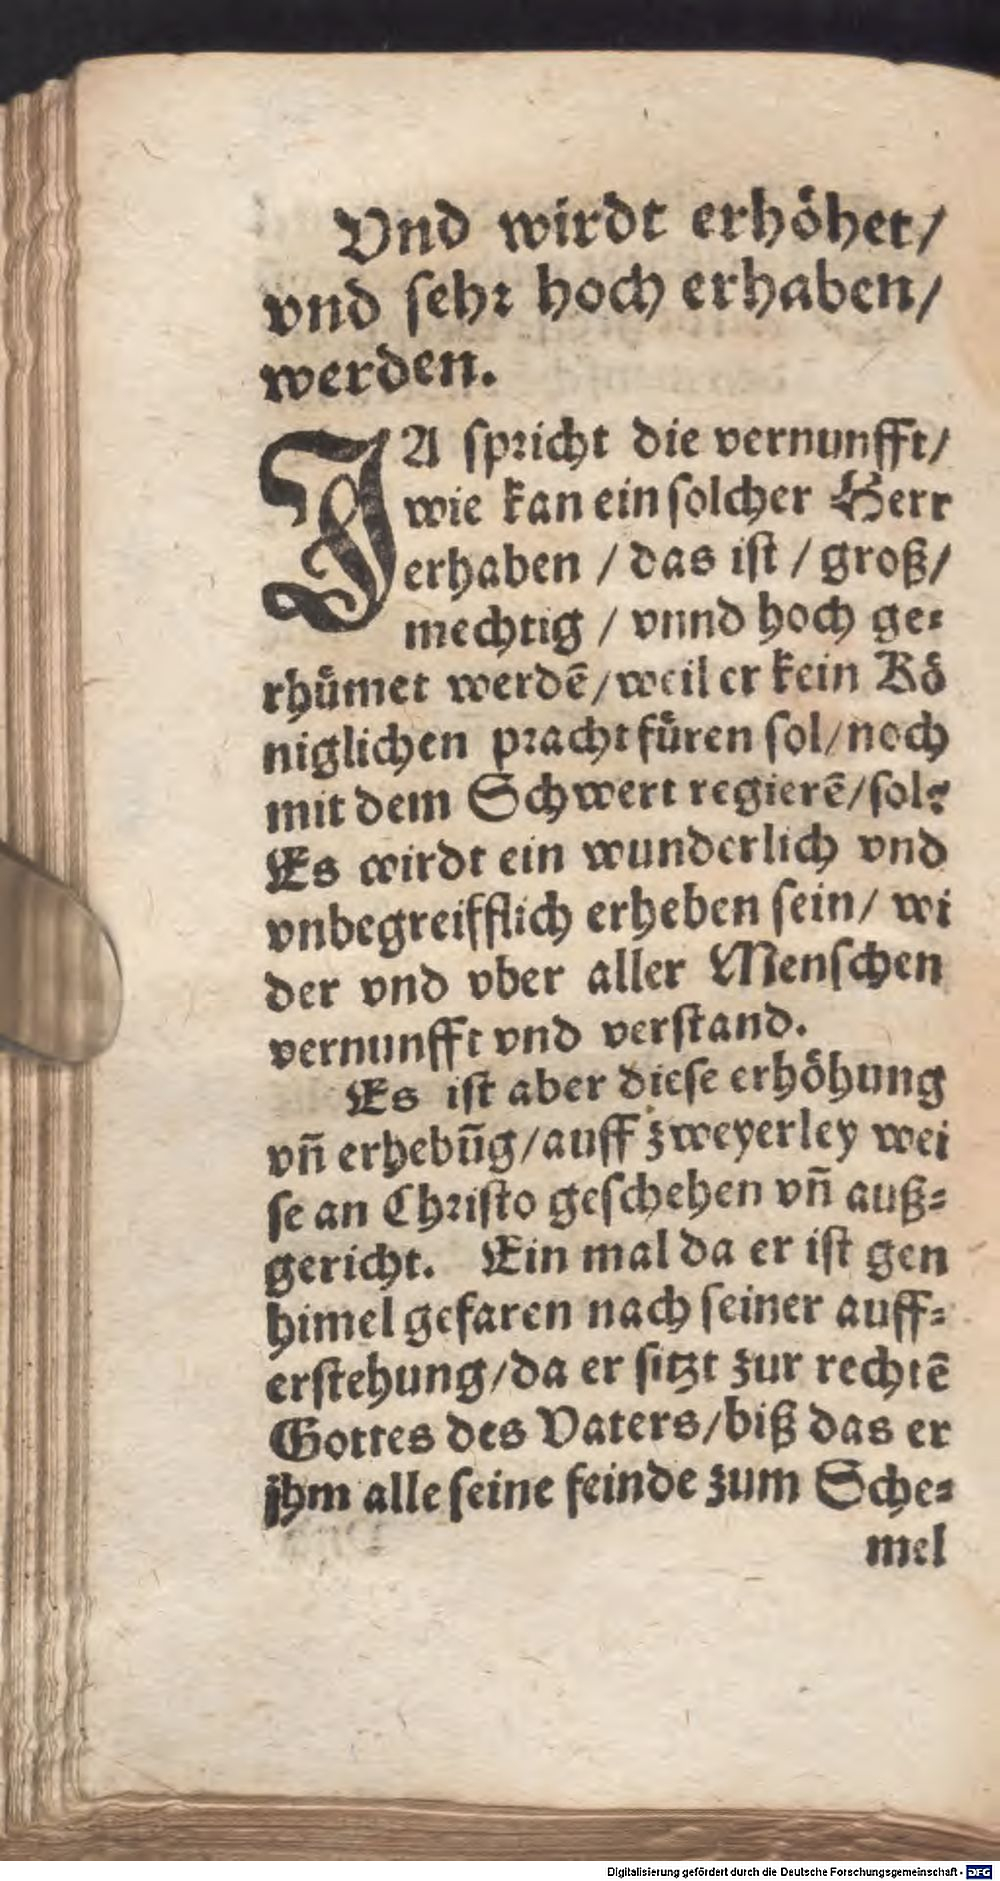 Vnd wirdt erhöhet/
vnd sehr hoch erhaben/
werden.
JA spricht die vernunfft/
wie kan ein solcher Herr
erhaben / das ist / groß/
mechtig / vnnd hoch ge⸗
rhümet werdē/weil er kein Kö
niglichen pracht füren sol/noch
mit dem Schwert regierē/sol?
Es wirdt ein wunderlich vnd
vnbegreifflich erheben sein/ wi
der vnd vber aller Menschen
vernunfft vnd verstand.
Es ist aber diese erhöhung
vñ erhebūg/auff zweyerley wei
se an Christo geschehen vñ auß⸗
gericht. Ein mal da er ist gen
himel gefaren nach seiner auff⸗
erstehung/da er sitzt zur rechtē
Gottes des Vaters/biß das er
jhm alle seine feinde zum Sche⸗
mel
Digitalisierung gefördert durch die Deutsche Forschungsgemeinschaft - DFG